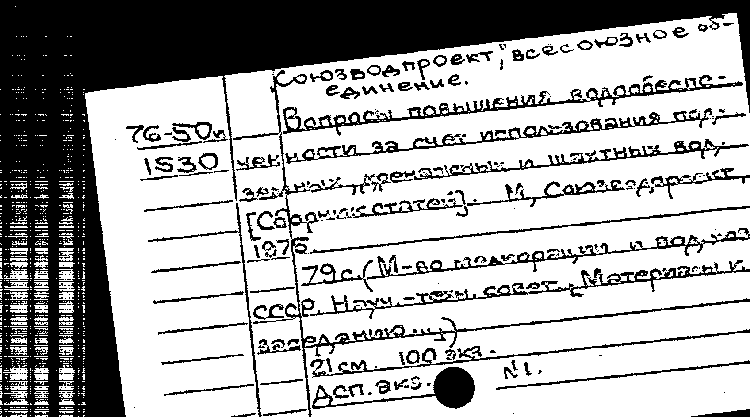 "Союзводпроект", всесоюзное об-
единение.
76-50и Вопросы повышения водообеспе-
1530 ченности за счет использования под-
земных, дренажных и шахтных вод.
[Сборник статей]. М, Союзводпроект,
1975.
79с. (М-во мелиорации и вод. хоз
СССР. Науч.-техн. совет. Материалы к
заседанию...)
21см. 100 экз.
ДСП. экз. №1.